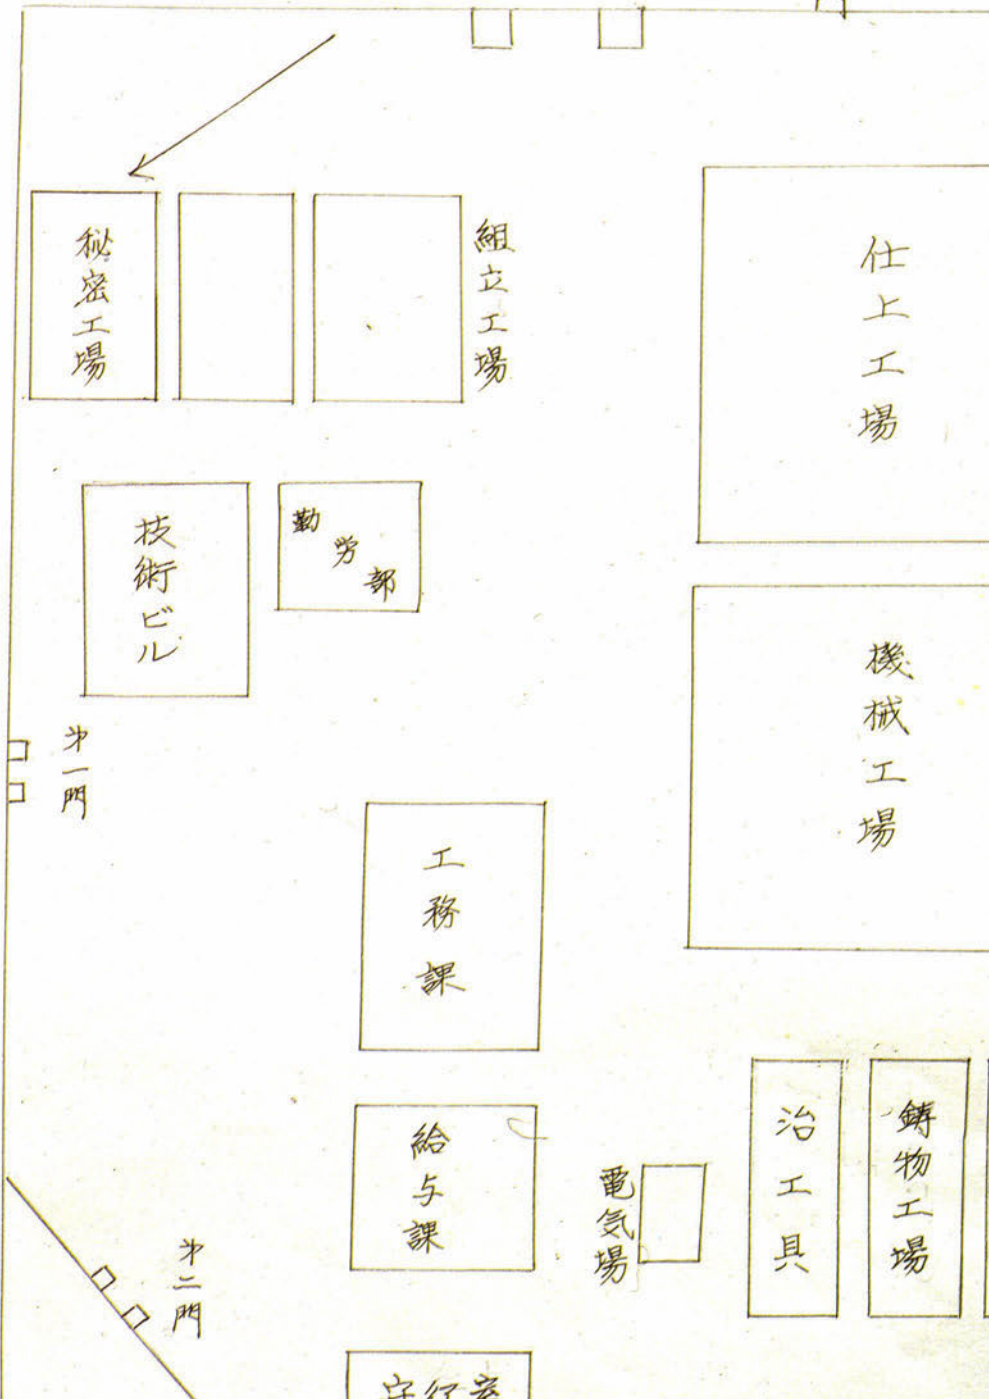 秘密工場
組立工場
仕上工場
技術ビル
勤労部
機械工場
㐧一門
工務課
給与課
電気場
治工具
鋳物工場
㐧二門